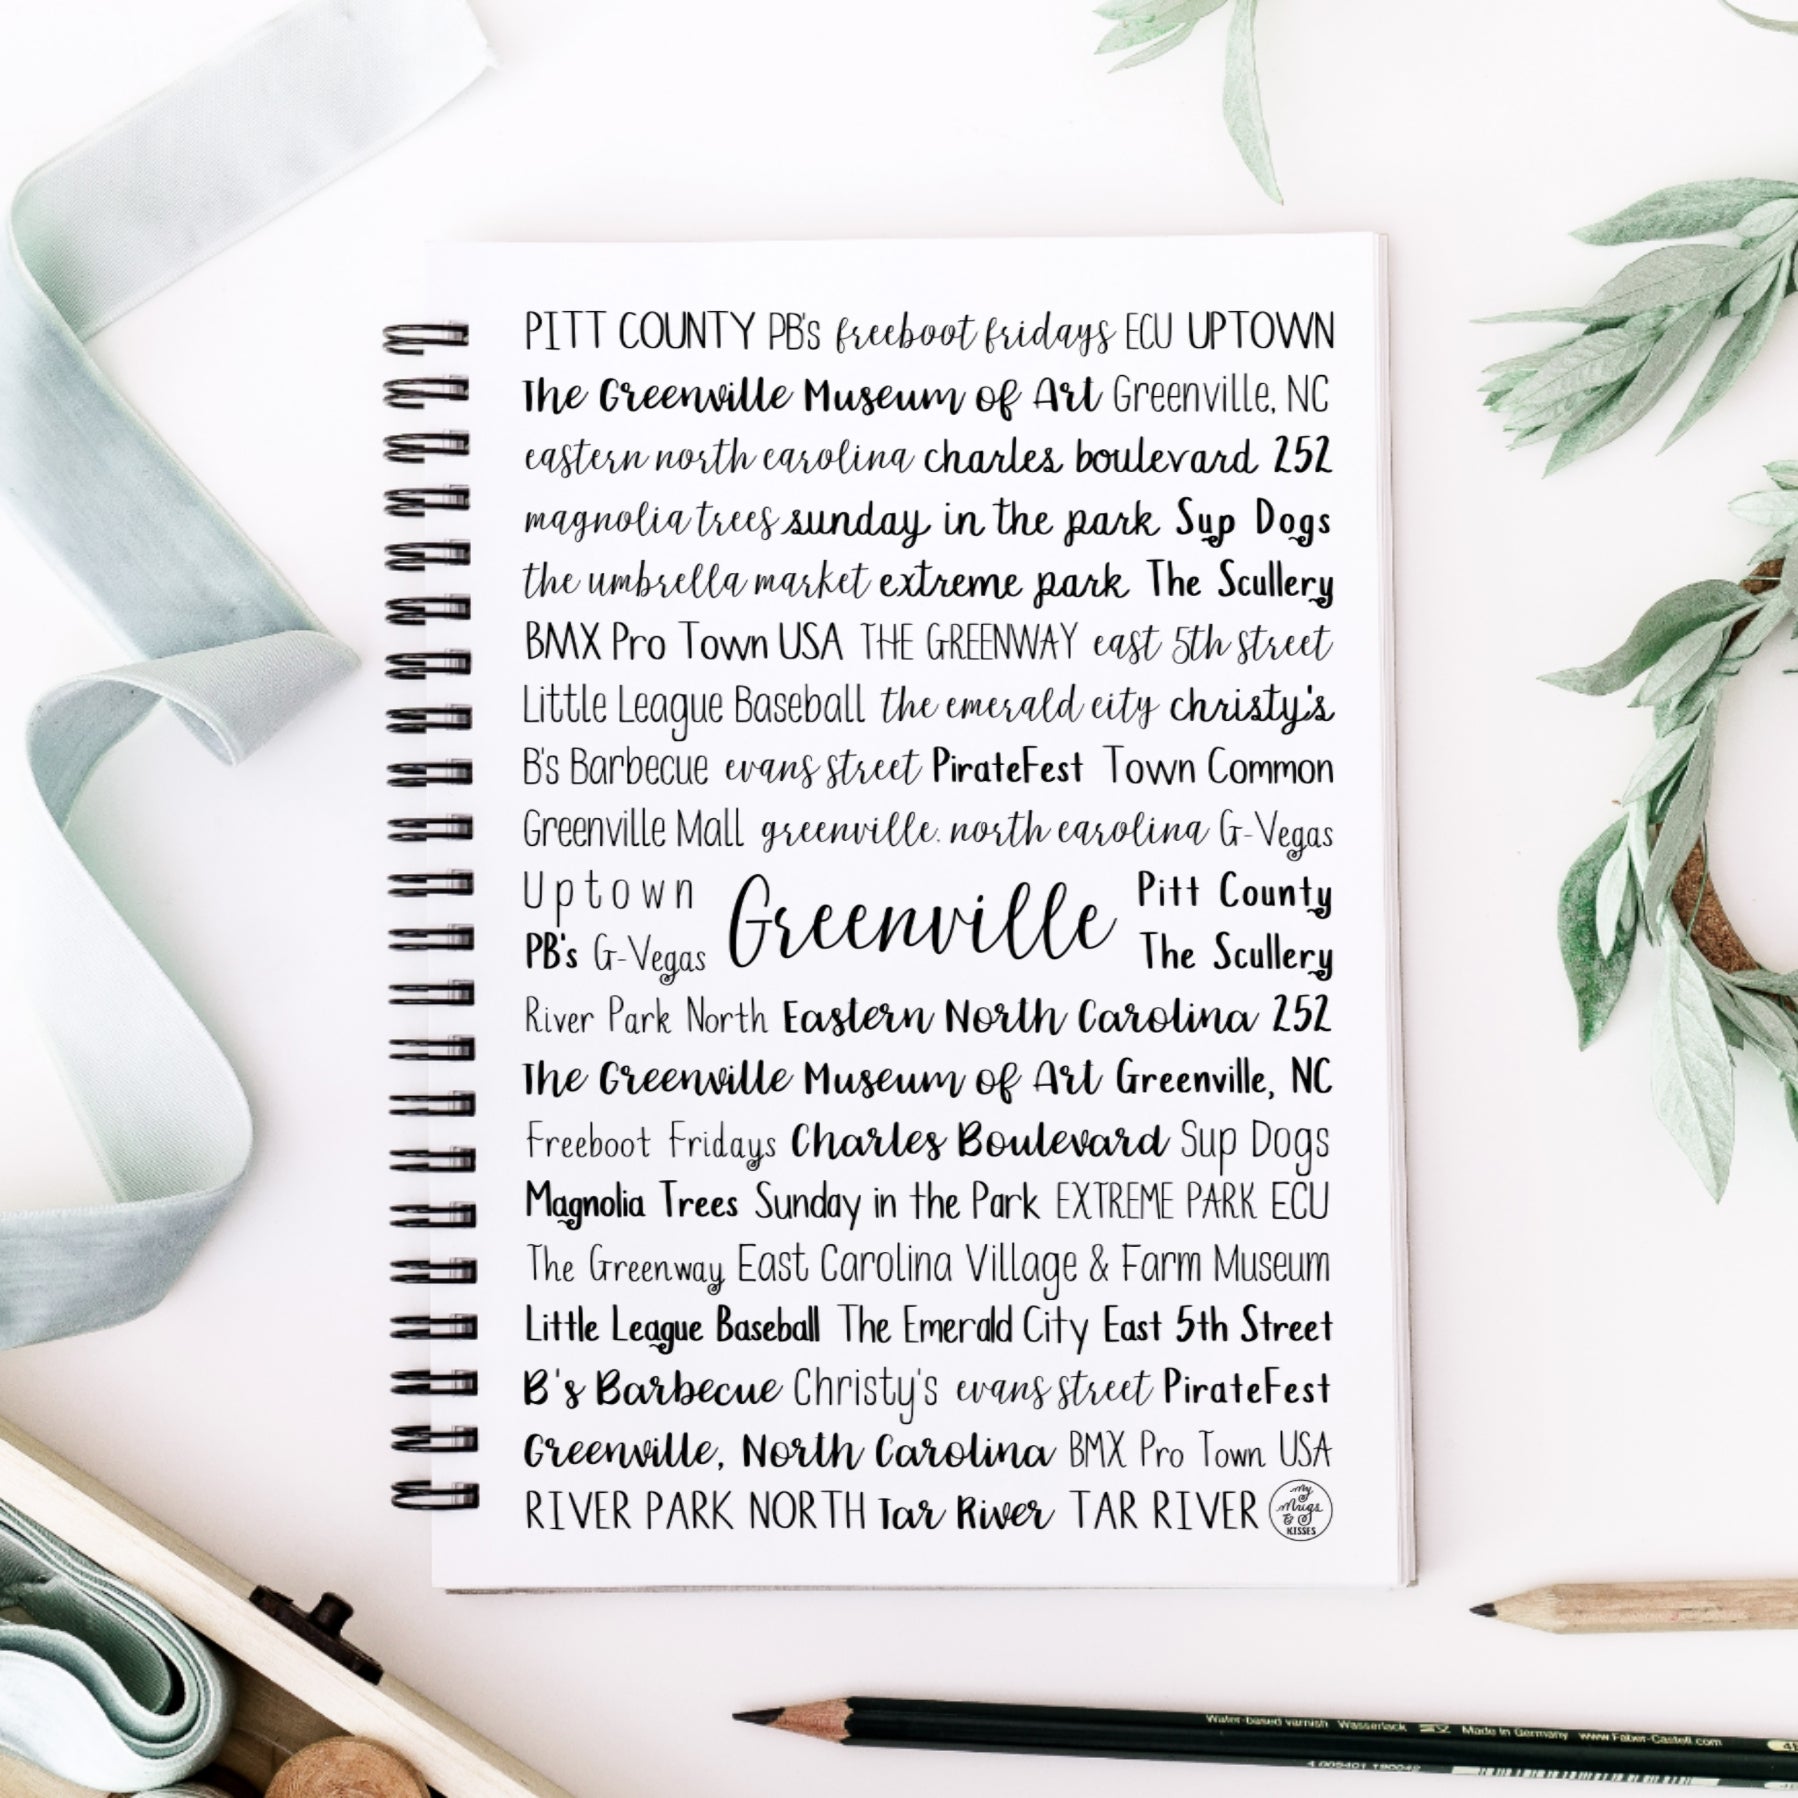 PITT COUNTY PB's freeboot fridays ECU UPTOWN
The Greenville Museum of Art Greenville, NC
eastern north carolina charles boulevard 252
magnolia trees sunday in the park Sup Dogs
the umbrella market extreme park The Scullery
BMX Pro Town USA THE GREENWAY east 5th street
Little League Baseball the emerald city christy's
B's Barbecue evans street PirateFest Town Common
Greenville Mall greenville. north carolina G-Vegas
Uptown
PB's G-Vegas
Greenville
Pitt County
The Scullery
River Park North Eastern North Carolina 252
The Greenville Museum of Art Greenville, NC
Freeboot Fridays Charles Boulevard Sup Dogs
Magnolia Trees Sunday in the Park EXTREME PARK ECU
The Greenway East Carolina Village & Farm Museum
Little League Baseball The Emerald City East 5th Street
B's Barbecue Christy's evans street PirateFest
Greenville, North Carolina BMX Pro Town USA
RIVER PARK NORTH Tar River TAR RIVER
My
Mugs
&
KISSES
Water-based varnish Wasserlack Made in Germany www.Faber-Castell.com
4 005401 190042